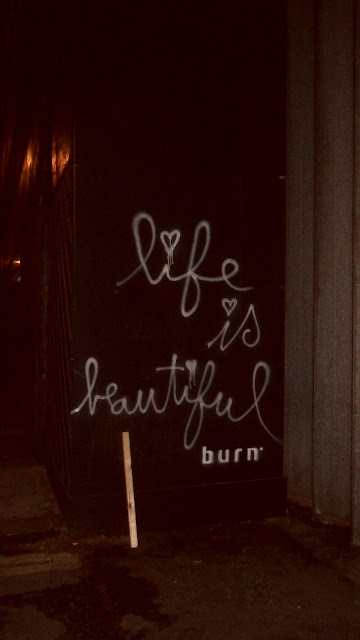 life
is
beautiful
burn